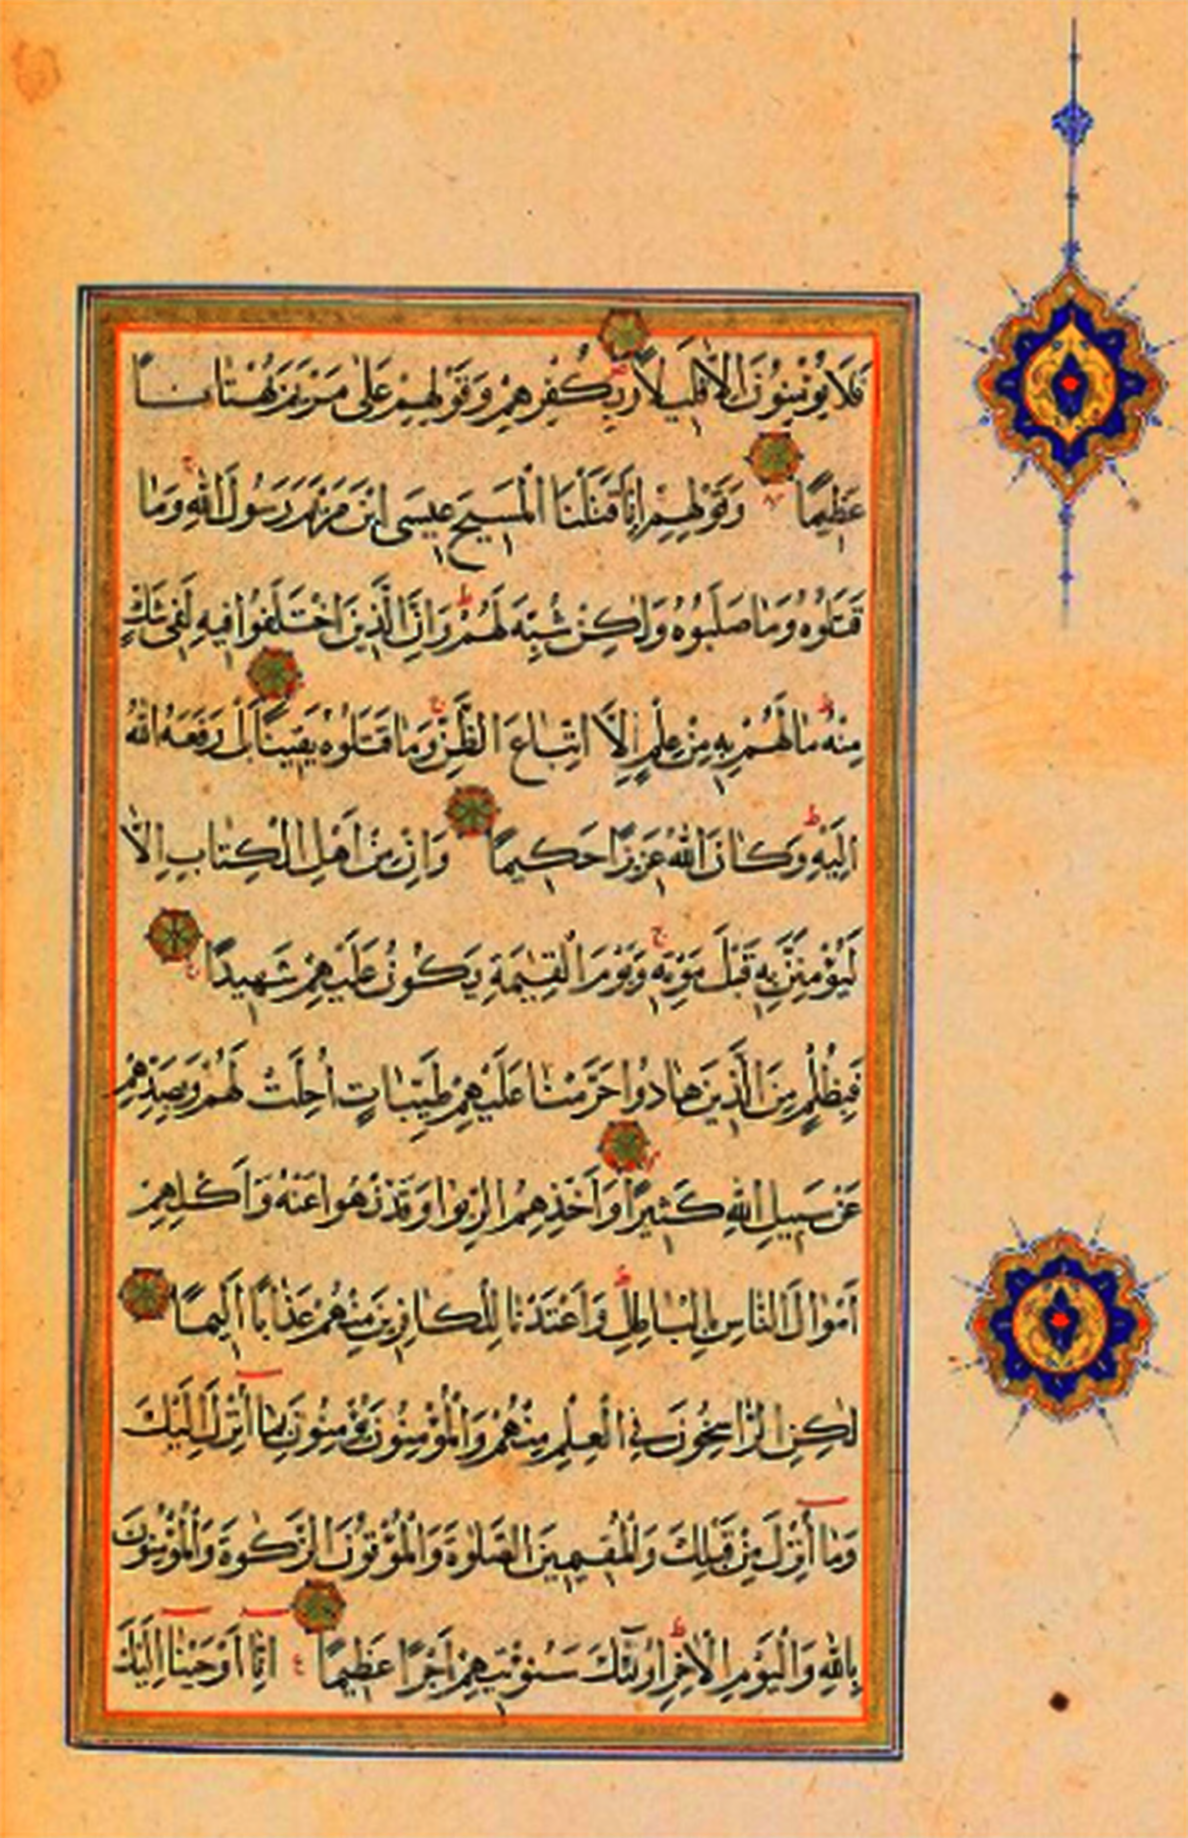 فَلَا يُؤْمِنُونَ اِلَّا قَلِيلًا وَبِكُفْرِهِمْ وَقَوْلِهِمْ عَلٰى مَرْيَمَ بُهْتَانًا
عَظِيمًا وَقَوْلِهِمْ اِنَّا قَتَلْنَا الْمَسِيحَ عِيسَى ابْنَ مَرْيَمَ رَسُولَ اللّٰهِ وَمَا
قَتَلُوهُ وَمَا صَلَبُوهُ وَلٰكِنْ شُبِّهَ لَهُمْ وَاِنَّ الَّذِينَ اخْتَلَفُوا فِيهِ لَفِى شَكٍّ
مِنْهُ مَا لَهُمْ بِهِ مِنْ عِلْمٍ اِلَّا اتِّبَاعَ الظَّنِّ وَمَا قَتَلُوهُ يَقِينًا بَلْ رَفَعَهُ اللّٰهُ
اِلَيْهِ وَكَانَ اللّٰهُ عَزِيزًا حَكِيمًا وَاِنْ مِنْ اَهْلِ الْكِتَابِ اِلَّا
لَيُؤْمِنَنَّ بِهِ قَبْلَ مَوْتِهِ وَيَوْمَ الْقِيٰمَةِ يَكُونُ عَلَيْهِمْ شَهِيدًا
فَبِظُلْمٍ مِنَ الَّذِينَ هَادُوا حَرَّمْنَا عَلَيْهِمْ طَيِّبَاتٍ اُحِلَّتْ لَهُمْ وَبِصَدِّهِمْ
عَنْ سَبِيلِ اللّٰهِ كَثِيرًا وَاَخْذِهِمُ الرِّبٰوا وَقَدْ نُهُوا عَنْهُ وَاَكْلِهِمْ
اَمْوَالَ النَّاسِ بِالْبَاطِلِ وَاَعْتَدْنَا لِلْكَافِرِينَ مِنْهُمْ عَذَابًا اَلِيمًا
لٰكِنِ الرَّاسِخُونَ فِى الْعِلْمِ مِنْهُمْ وَالْمُؤْمِنُونَ يُؤْمِنُونَ بِمَا اُنْزِلَ اِلَيْكَ
وَمَا اُنْزِلَ مِنْ قَبْلِكَ وَالْمُقِيمِينَ الصَّلٰوةَ وَالْمُؤْتُونَ الزَّكٰوةَ وَالْمُؤْمِنُونَ
بِاللّٰهِ وَالْيَوْمِ الْاٰخِرِ اُولٰٓئِكَ سَنُؤْتِيهِمْ اَجْرًا عَظِيمًا اِنَّا اَوْحَيْنَا اِلَيْكَ